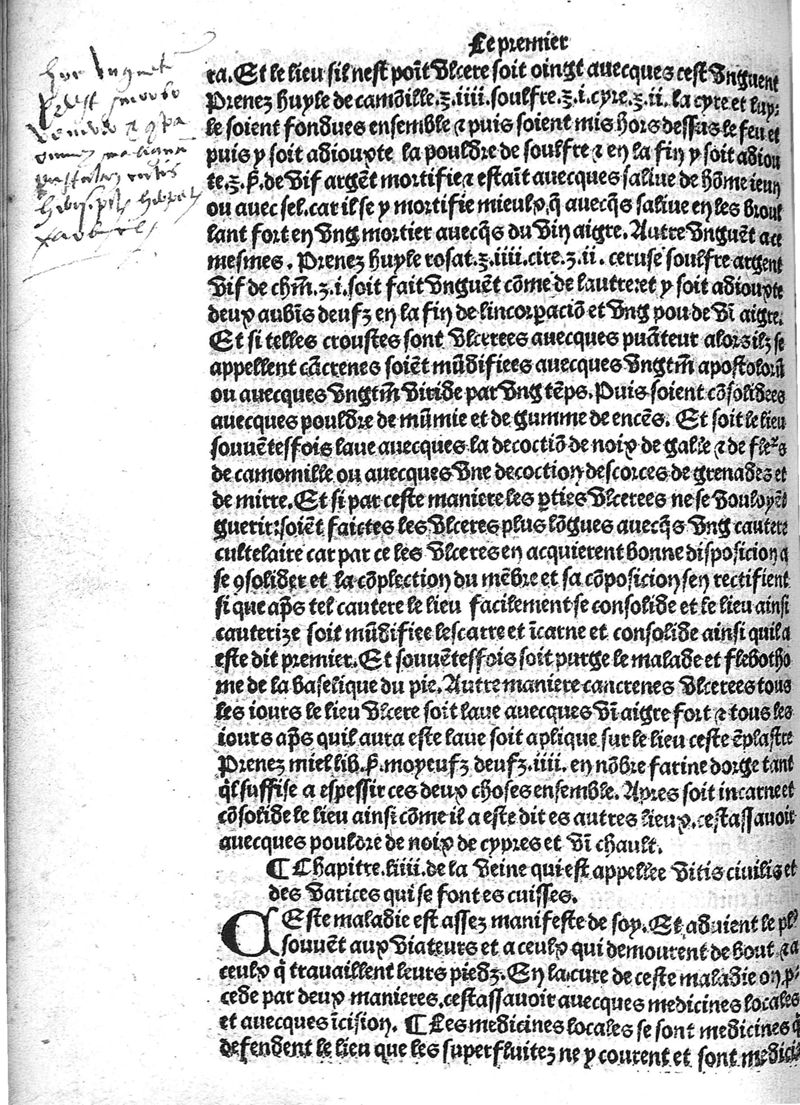 Le premier
ra. Et le lieu sil nest poĩt vlcere soit oingt auecques cest vnguent
Prenez huyle de camõille.℥.iiii.soulfre.℥.i.cyre.℥.ii. la cyre et luy-
le soient fondues ensemble ⁊ puis soient mis hors dessus le feu et
puis y soit adiouxte la pouldre de soulfre ⁊ en la fin y soit adiou
te.℥.ꝭ. de vif argẽt mortifie ⁊ estaĩt auecques saliue de hõme ieun
ou auec sel. car il se y mortifie mieulx q̃ auecq̃s saliue en les broul
lant fort en vng mortier auecq̃s du vin aigre. Autre vnguẽt a ce
mesmes. Prenez huyle rosat.℥.iiii.cire.℥.ii. ceruse soulfre argent
vif de chm̃.℥.i.soit fait vnguẽt cõme de lautre: et y soit adiouxte
deux aubĩs deufz en la fin de lincorꝑaciõ et vng pou de vĩ aigre.
Et si telles croustes sont vlcerees auecques puãteur alors ilz se
appellent cãcrenes soiẽt mũdifiees auecques vngtm̃ apostolorũ
ou auecques vngtm̃ viride par vng tẽps. Puis soient cõsolidees
auecques pouldre de mũmie et de gumme de encẽs. Et soit le lieu
souuẽtesfois laue auecques la decoctiõ de noix de galle ⁊ de fleᷣs
de camomille ou auecques vne decoction descorces de grenadez et
de mirre. Et si par ceste maniere les ꝑties vlcerees ne se vouloyẽt
guerir: soiẽt faictes les vlceres plus lõgues auecq̃s vng cautere
cultelaire car par ce les vlceres en acquierent bonne disposicion a
se ꝯsolider et la cõplection du mẽbre et sa cõposicion sen rectifient
si que ap̃s tel cautere le lieu facilement se consolide et le lieu ainsi
cauterize soit mũdifie lescarre et ĩcarne et consolide ainsi quil a
este dit premier. Et souuẽtesfois soit purge le malade et flebotho
me de la baselique du pie. Autre maniere cancrenes vlcerees tous
les iours le lieu vlcere soit laue auecques vĩ aigre fort ⁊ tous les
iours ap̃s quil aura este laue soit aplique sur le lieu ceste ẽplastre
Prenez miel lib.ꝭ. moyeufz deufz.iiii. en nõbre farine dorge tant
q̃l suffise a espessir ces deux choses ensemble. Apres soit incarne et
cõsolide le lieu ainsi cõme il a este dit es autres lieux. cestassauoir
auecques pouldre de noix de cypres et vĩ chault.
¶ Chapitre.liiii. de la veine qui est appellee vitis ciuilis et
des varices qui se font es cuisses.
Ceste maladie est assez manifeste de soy. Et aduient le plꝰ
souuẽt aux viateurs et a ceulx qui demourent de bout ⁊ a
ceulx q̃ trauaillent leurs piedz. En la cure de ceste maladie on ꝓ-
cede par deux manieres. cestassauoir auecques medicines locales
et auecques ĩcision. ¶ Les medicines locales se sont medicines q̃
defendent le lieu que les superfluitez ne y courent et sont medici